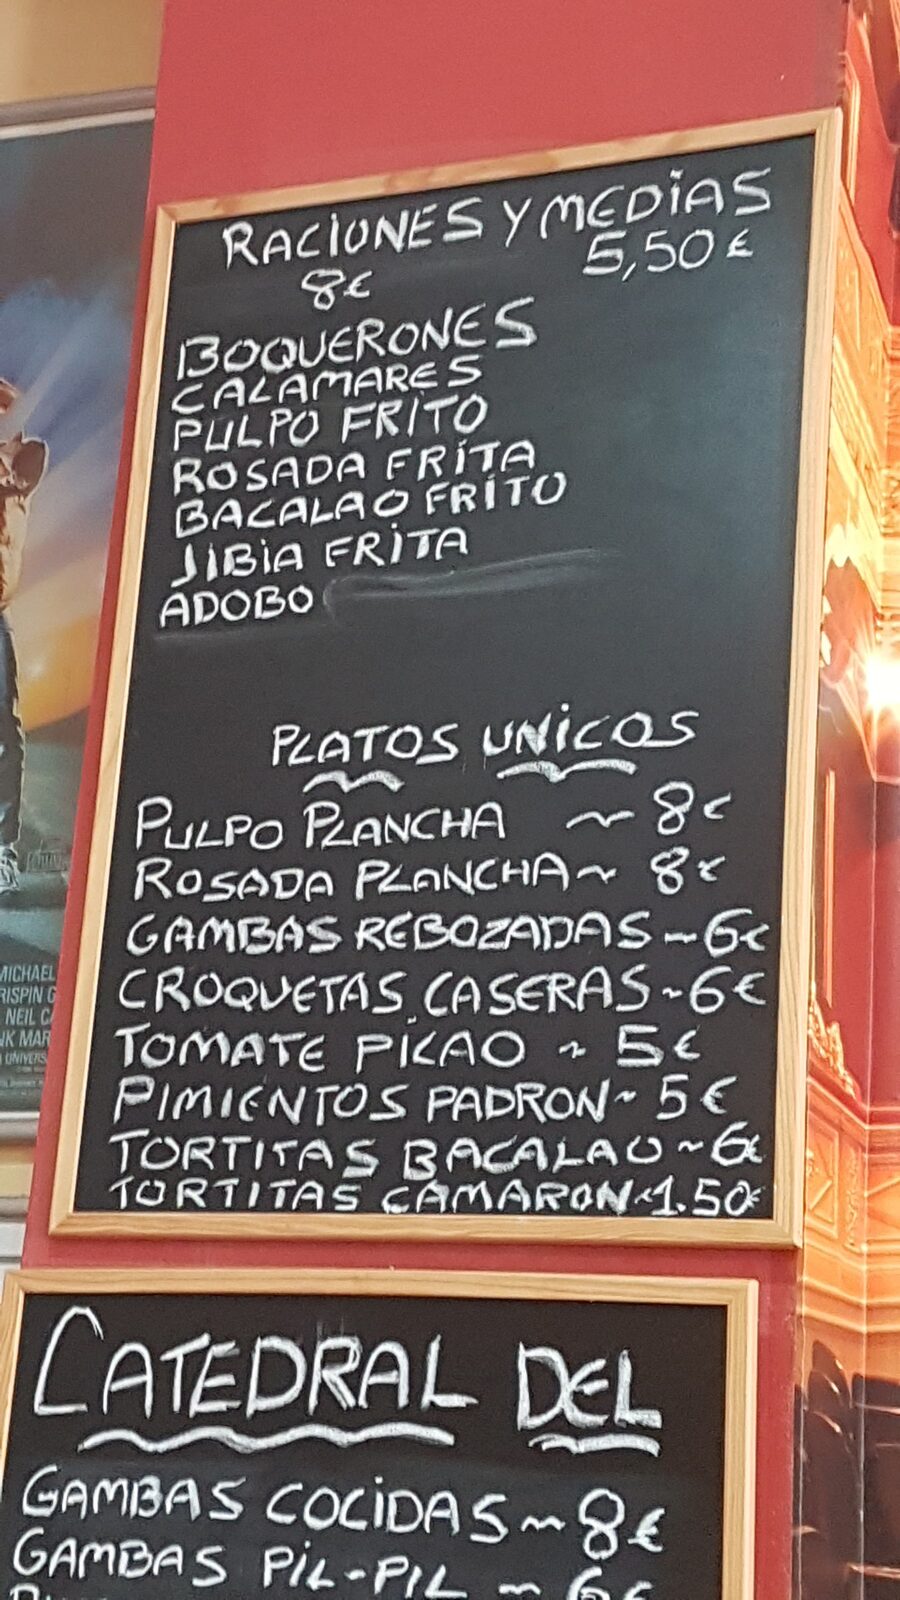 RACIONES Y MEDIAS
8€ 5,50€
BOQUERONES
CALAMARES
PULPO FRITO
ROSADA FRITA
BACALAO FRITO
JIBIA FRITA
ADOBO
PLATOS UNICOS
PULPO PLANCHA ~ 8€
ROSADA PLANCHA ~ 8€
GAMBAS REBOZADAS ~ 6€
CROQUETAS CASERAS ~ 6€
TOMATE PICAO ~ 5€
PIMIENTOS PADRON ~ 5€
TORTITAS BACALAO ~ 6€
TORTITAS CAMARON ~ 1.50€
CATEDRAL DEL
GAMBAS COCIDAS ~ 8€
GAMBAS PIL-PIL ~ 6€
MICHAEL
RISPIN G
NEIL C
NK MAR
UNIVERS